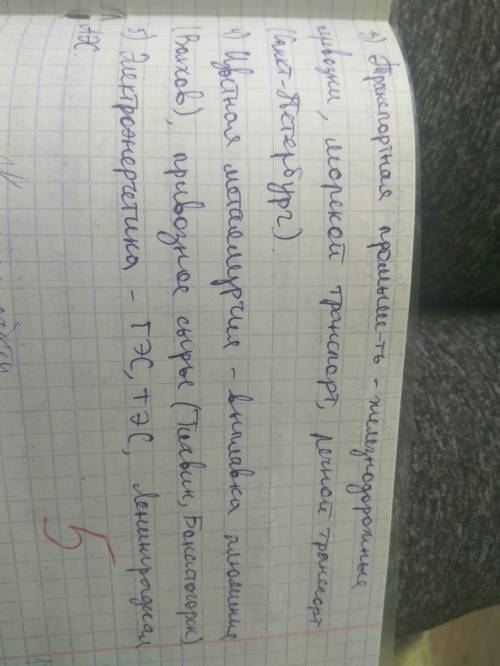 3) Транспортная промыш-ть - железнодорожные
привозки, морской транспорт, речной транспорт
(Санкт-Петербург)
4) Цветная металлургия - выплавка алюминия
(Волхов), привозное сырье (Тихвин, Бокситогорск)
5) Электроэнергетика - ГЭС, ТЭС, Ленинградская
АЭС.
5